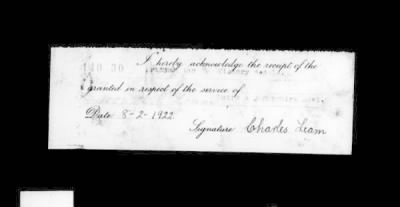 I hereby acknowledge the receipt of the
granted in respect of the service of
Date 8-2-1922
Signature Charles Leam